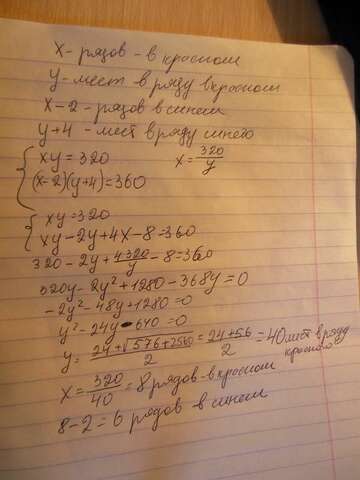 x - рядов - в красном
y - мест в ряду в красном
x-2 - рядов в синем
y+4 - мест в ряду синего
{ xy = 320 x = 320/y
(x-2)(y+4) = 360
{ xy = 320
xy - 2y + 4x - 8 = 360
320 - 2y + 4·320/y - 8 = 360
320y - 2y² + 1280 - 368y = 0
-2y² - 48y + 1280 = 0
y² - 24y - 640 = 0
y = (24 + √(576 + 2560))/2 = (24 + 56)/2 = 40 мест в ряду красного
x = 320/40 = 8 рядов - в красном
8 - 2 = 6 рядов в синем